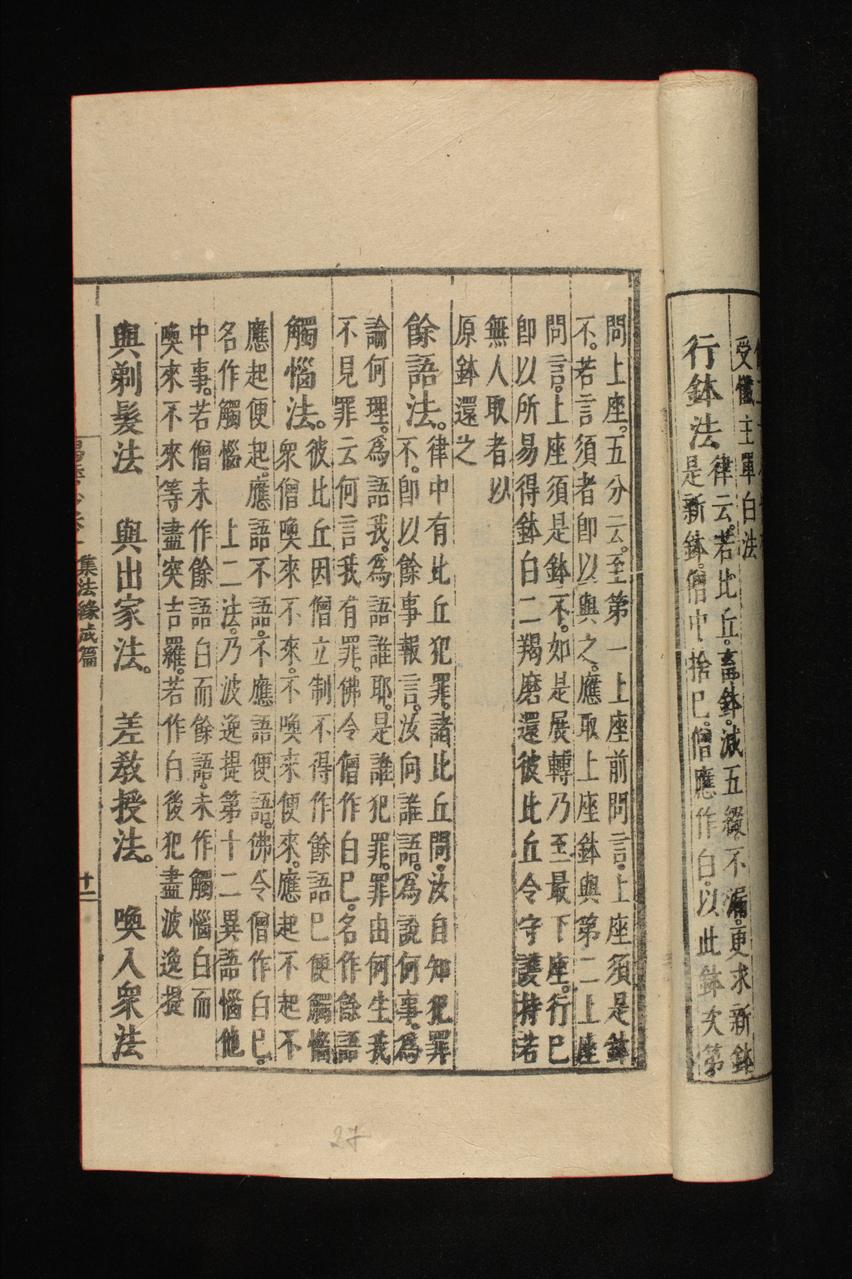 受懺主單白法
行鉢法
律云。若比丘。畜鉢。減五綴不漏。更求新鉢
是新鉢。僧中捨已。僧應作白。以此鉢次第
問上座。五分云。至第一上座前問言。上座須是鉢
不。若言須者卽以與之。應取上座鉢與第二上座
問言。上座須是鉢不。如是展轉乃至最下座。行已
卽以所易得鉢白二羯磨還彼比丘令守護持若
無人取者以
原鉢還之
餘語法。
律中有比丘犯罪。諸比丘問。汝自知犯罪
不。卽以餘事報言。汝向誰語。爲說何事。爲
論何理。爲語我。爲語誰耶。是誰犯罪。罪由何生我
不見罪云何言我有罪。佛令僧作白已。名作餘語
觸惱法。
彼比丘因僧立制不得作餘語已便觸惱
衆僧喚來不來。不喚來便來。應起不起不
應起便起。應語不語。不應語便語。佛令僧作白已。
名作觸惱
上二法。乃波逸提第十二異語惱他
中事。若僧未作餘語白而餘語。未作觸惱白而
喚來不來等盡突吉羅。若作白後犯盡波逸提
與剃髮法 與出家法。 差敎授法。 喚入衆法
集法緣成篇
十二
27